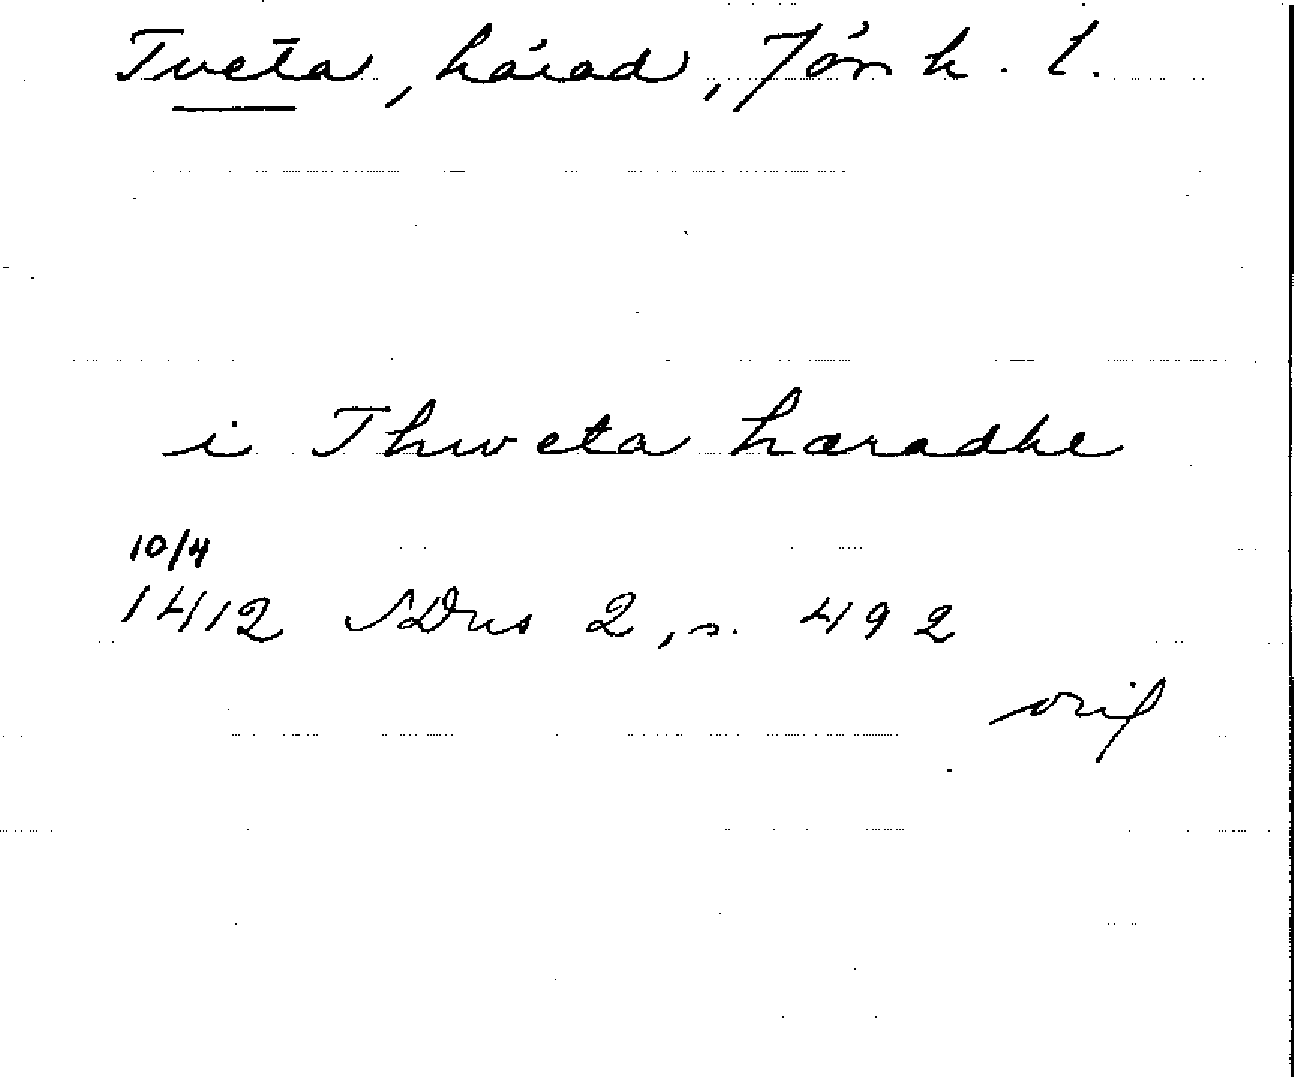 Tveta, härad, Jönk. l.
i Thweta haradhe
10/4
1412 SDns 2, s. 492
orig